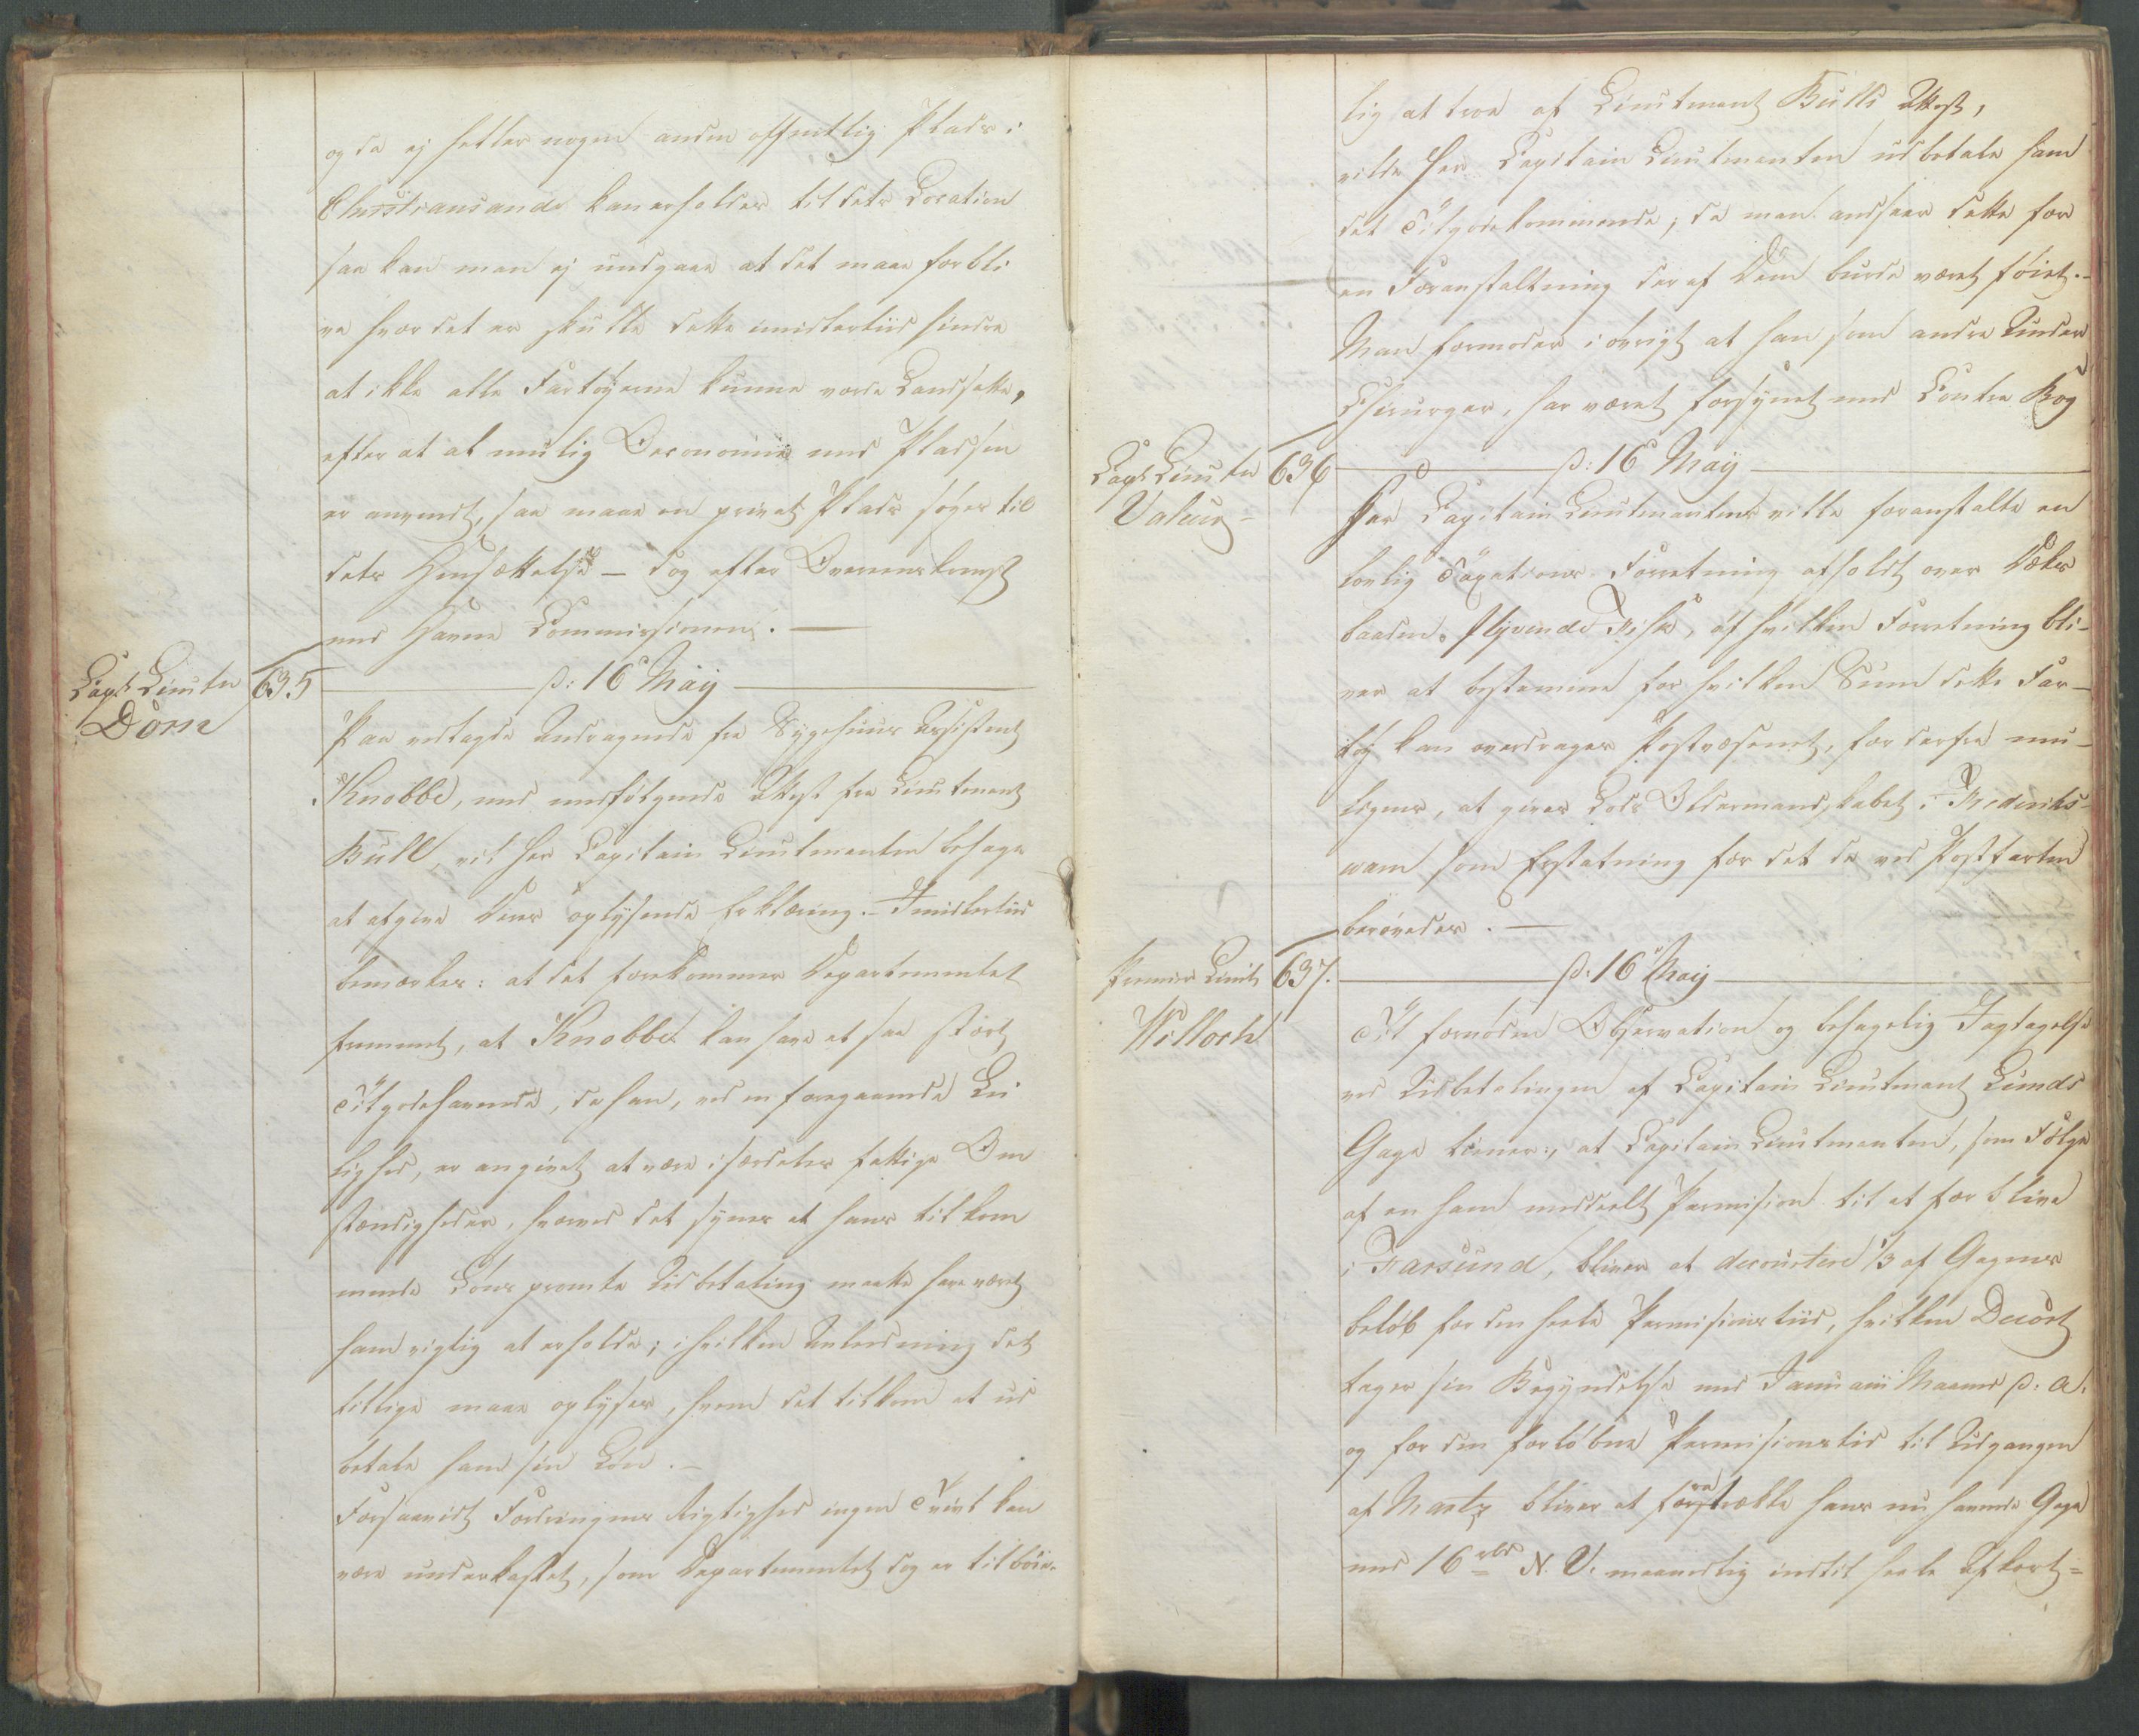 og da ej heller nogen anden offentlig Plads i
Christiansands kan erholdes til dets Location
saa kan man ej undgaae at det maae forbli
ve hvor det er skulle dette imidlertiid hindre
at ikke alle Fartøyerne kunne vorde Landsatte,
efter at al mulig Oeconomie med Pladsen
er anvendt, saa maae en privat Plads søges til
dets Hensættelse – dog efter Overenskomst
med Havne Commissionen. —
Capt. Lieutn
Dorn
635
d: 16 May
Paa vedlagde Andragende fra Sygehuus Assistent
Knobbe, med medfølgende Attest fra Lieutenant
Bull, vil Her Capitain Lieutenanten behage
at afgive Deres oplysende Erklæring. – Imidlertiid
bemærkes: at det forekommer Departementet
fremmet, at Knobbe kan have et saa stort
Tilgodehavende, da han, ved en foregaaende Lei
lighed, er angivet at være i særdeles fattige Om
stændigheder, hvorved det synes at hans tilkom
mende Løns promte Udbetaling maatte have været
ham vigtig at erholde; i hvilken Anledning det
tillige maae oplyses, hvem det tilkom at ud
betale ham sin Løn. –
Forsaavidt Fordringens Rigtighed ingen Tvivl kan
være underkastet, som Departementet dog er tilbøie-
lig at troe af Lieutenant Bulls Attest,
vilde Her Capitain Lieutenanten udbetale ham
det Tilgodekommende, da man andseer dette for
en Foranstaltning der af Dem burde været føiet. –
Man formoder i øvrigt at han som andre Under
Chirurger, har været forsynet med Contra Bog
Capt Lieutn
Valeur –
636
d: 16 May
Her Capitain Lieutenanten ville foranstalte en
lovlig Taxations Forretning afholdt over Dæks
baaden Flyvende Fisk, af hvilken Forretning bli-
ver at bestemme for hvilken Sum dette Far-
tøy kan overdrages Postvæsenet, for derfra mu-
ligens, at gives Lods Oldermandskabet i Frederiks-
værn som Erstatning for det de ved Postfarten
berøvedes. —
Premier Lieut
Willoch
637.
d: 16 May
Til fornøden Observation og behagelig Iagtagelse
ved Udbetalingen af Capitain Lieutenant Lunds
Gage tiener:, at Capitain Lieutenanten, som Følge
af en ham meddeelt Permission til at forblive
i Farsund, bliver at decourtere 1/3 af Gagens
beløb for den heele Permisionstiid, hvilken Decort
tager sin Begyndelse med Januarii Maaned d: A.
og for den forløbne Permisionstid til Udgangen
af Marty bliver at fratrække hans nu havende Gage
med 16 rbd N. V. maanedlig indtil heele Afkort=